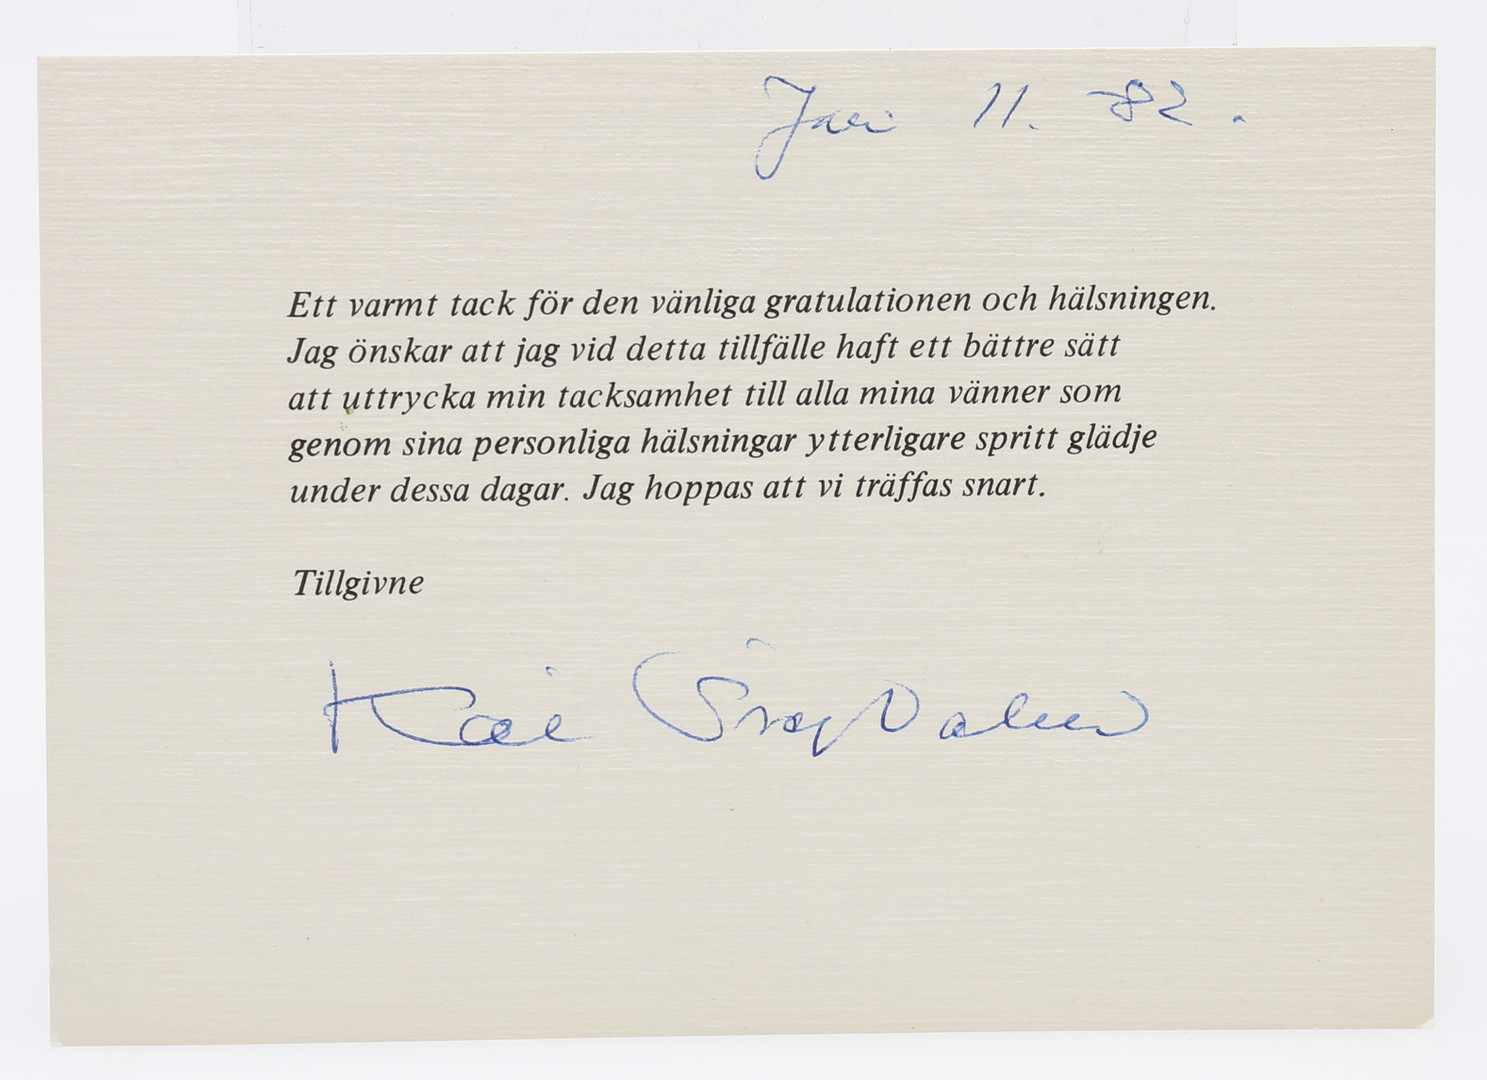 Jan 11. -82.
Ett varmt tack för den vänliga gratulationen och hälsningen.
Jag önskar att jag vid detta tillfälle haft ett bättre sätt
att uttrycka min tacksamhet till alla mina vänner som
genom sina personliga hälsningar ytterligare spritt glädje
under dessa dagar. Jag hoppas att vi träffas snart.
Tillgivne
Kai